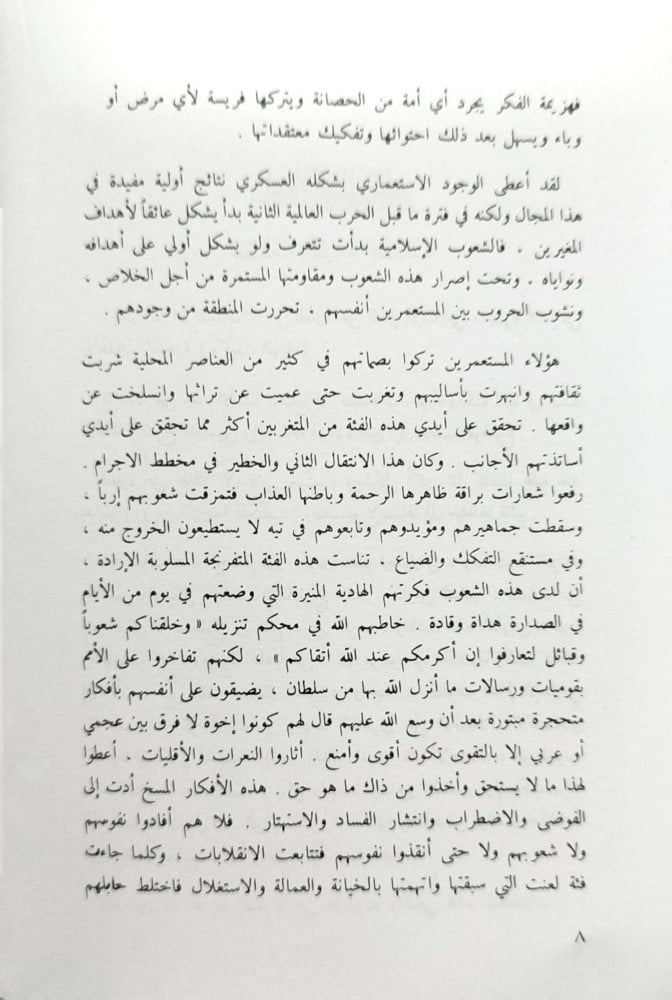 فهزيمة الفكر يجرد أي أمة من الحصانة ويتركها فريسة لأي مرض أو
وباء ويسهل بعد ذلك احتوائها وتفكيك معتقداتها .
لقد أعطى الوجود الاستعماري بشكله العسكري نتائج أولية مفيدة في
هذا المجال ولكنه في فترة ما قبل الحرب العالمية الثانية بدأ يشكل عائقاً لأهداف
المغيرين . فالشعوب الإسلامية بدأت تتعرف ولو بشكل أولي على أهدافه
ونواياه . وتحت إصرار هذه الشعوب ومقاومتها المستمرة من أجل الخلاص ،
ونشوب الحروب بين المستعمرين أنفسهم ، تحررت المنطقة من وجودهم .
هؤلاء المستعمرين تركوا بصماتهم في كثير من العناصر المحلية شربت
ثقافتهم وانبهرت بأساليبهم وتغربت حتى عميت عن تراثها وانسلخت عن
واقعها . تحقق على أيدي هذه الفئة من المتغربين أكثر مما تحقق على أيدي
أساتذتهم الأجانب . وكان هذا الانتقال الثاني والخطير في مخطط الاجرام .
رفعوا شعارات براقة ظاهرها الرحمة وباطنها العذاب فتمزقت شعوبهم إرباً ،
وسقطت جماهيرهم ومؤيدوهم وتابعوهم في تيه لا يستطيعون الخروج منه ،
وفي مستنقع التفكك والضياع ، تناست هذه الفئة المتفرنجة المسلوبة الإرادة ،
أن لدى هذه الشعوب فكرتهم الهادية المنيرة التي وضعتهم في يوم من الأيام
في الصدارة هداة وقادة . خاطبهم الله في محكم تنزيله « وخلقناكم شعوباً
وقبائل لتعارفوا إن أكرمكم عند الله أتقاكم » ، لكنهم تفاخروا على الأمم
بقوميات ورسالات ما أنزل الله بها من سلطان ، يضيقون على أنفسهم بأفكار
متحجرة مبتورة بعد أن وسع الله عليهم قال لهم كونوا إخوة لا فرق بين عجمي
أو عربي إلا بالتقوى تكون أقوى وأمنع . أثاروا النعرات والأقليات . أعطوا
لهذا ما لا يستحق وأخذوا من ذاك ما هو حق . هذه الأفكار المسخ أدت إلى
الفوضى والاضطراب وانتشار الفساد والاستهتار . فلا هم أفادوا نفوسهم
ولا شعوبهم ولا حتى أنقذوا نفوسهم فتتابعت الانقلابات ، وكلما جاءت
فئة لعنت التي سبقتها واتهمتها بالخيانة والعمالة والاستغلال فاختلط حابلهم
٨